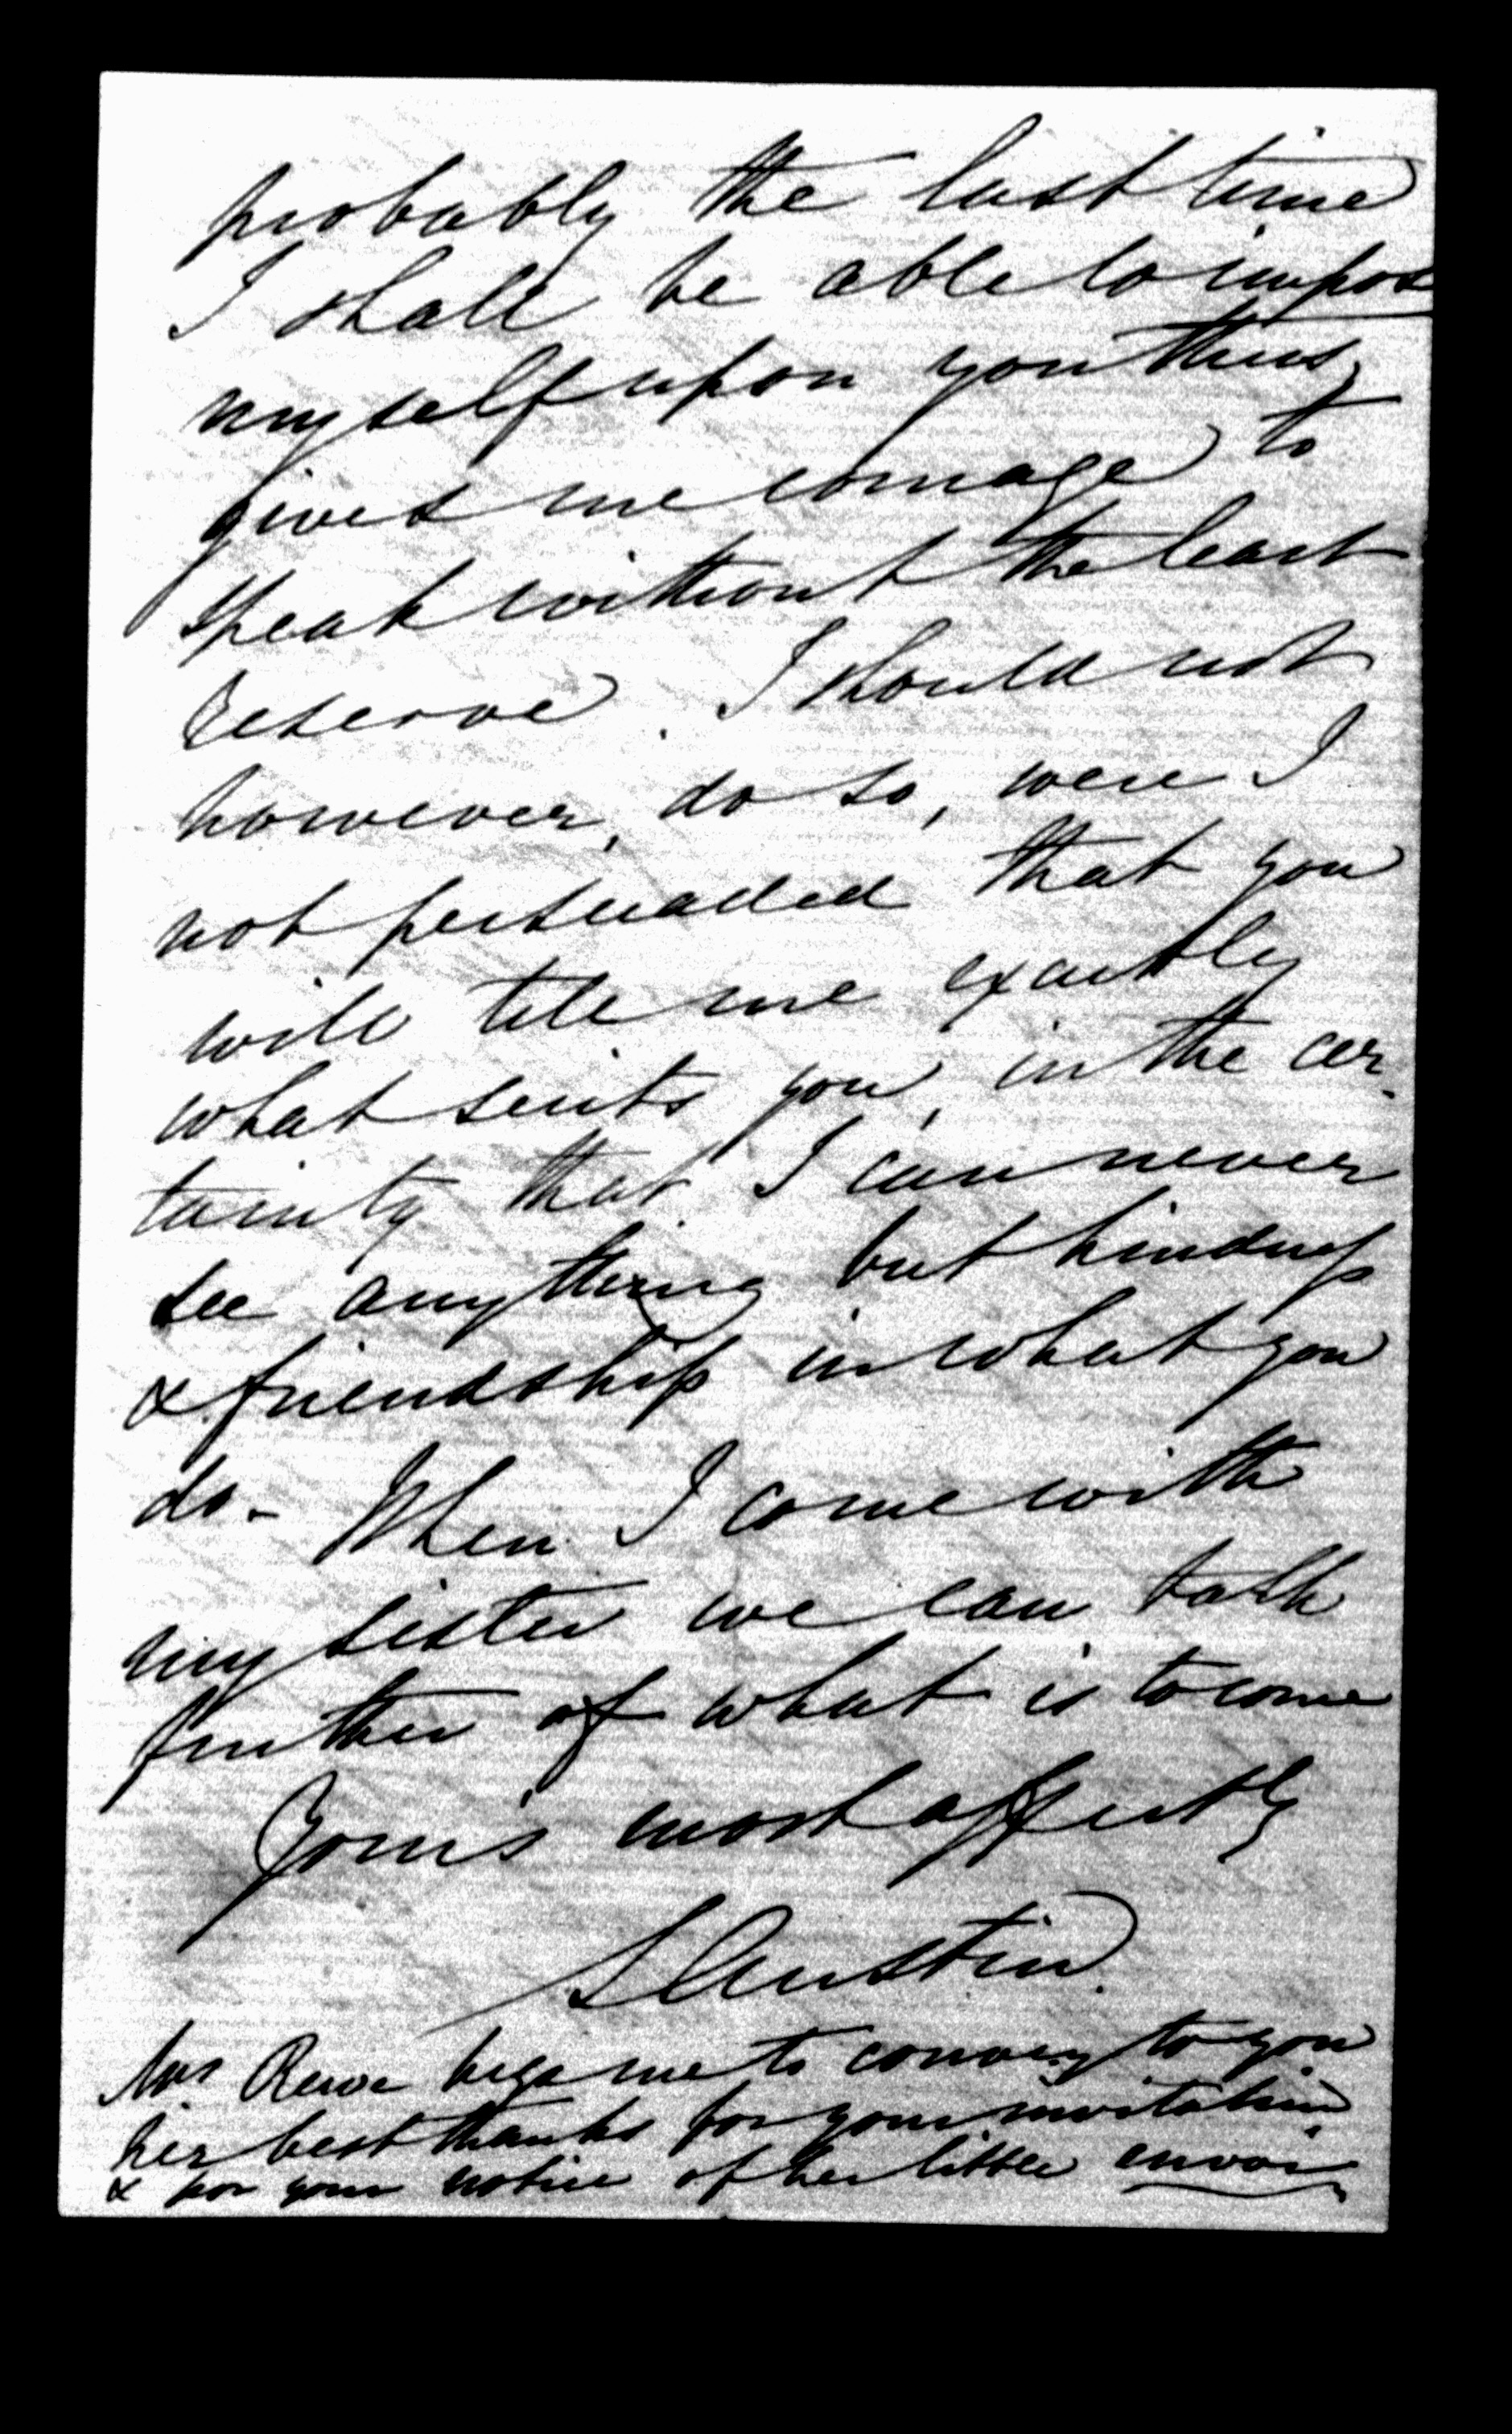 probably the last time
I shall be able to impose
myself upon you thus,
gives me courage to
speak without the least
reserve. I should not
however, do so, were I
not persuaded that you
will tell me exactly
what suits you, in the cer-
tainty that I can never
see anything but kindness
& friendship in what you
do - When I come with
my sister we can talk
further of what is to come
Yours most affectly
S Austin.
Mrs Reeve begs me to convey to you
her best thanks for your invitation
& for your notice of her little envoi